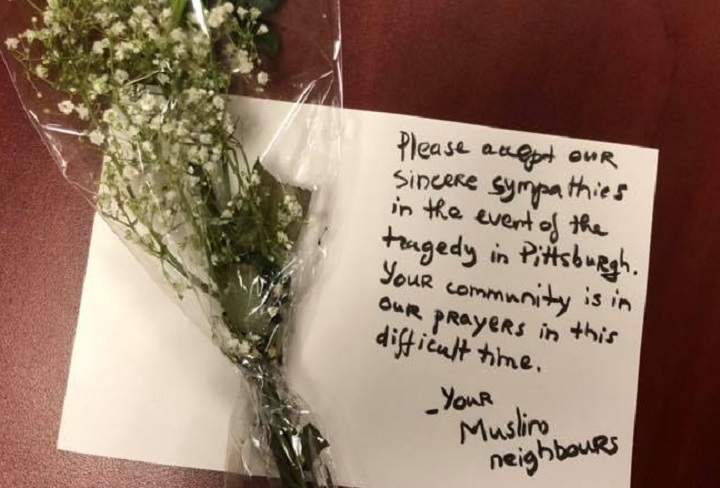 Please accept our
sincere sympathies
in the event of the
tragedy in Pittsburgh.
Your community is in
our prayers in this
difficult time.
- Your
Muslim
neighbours